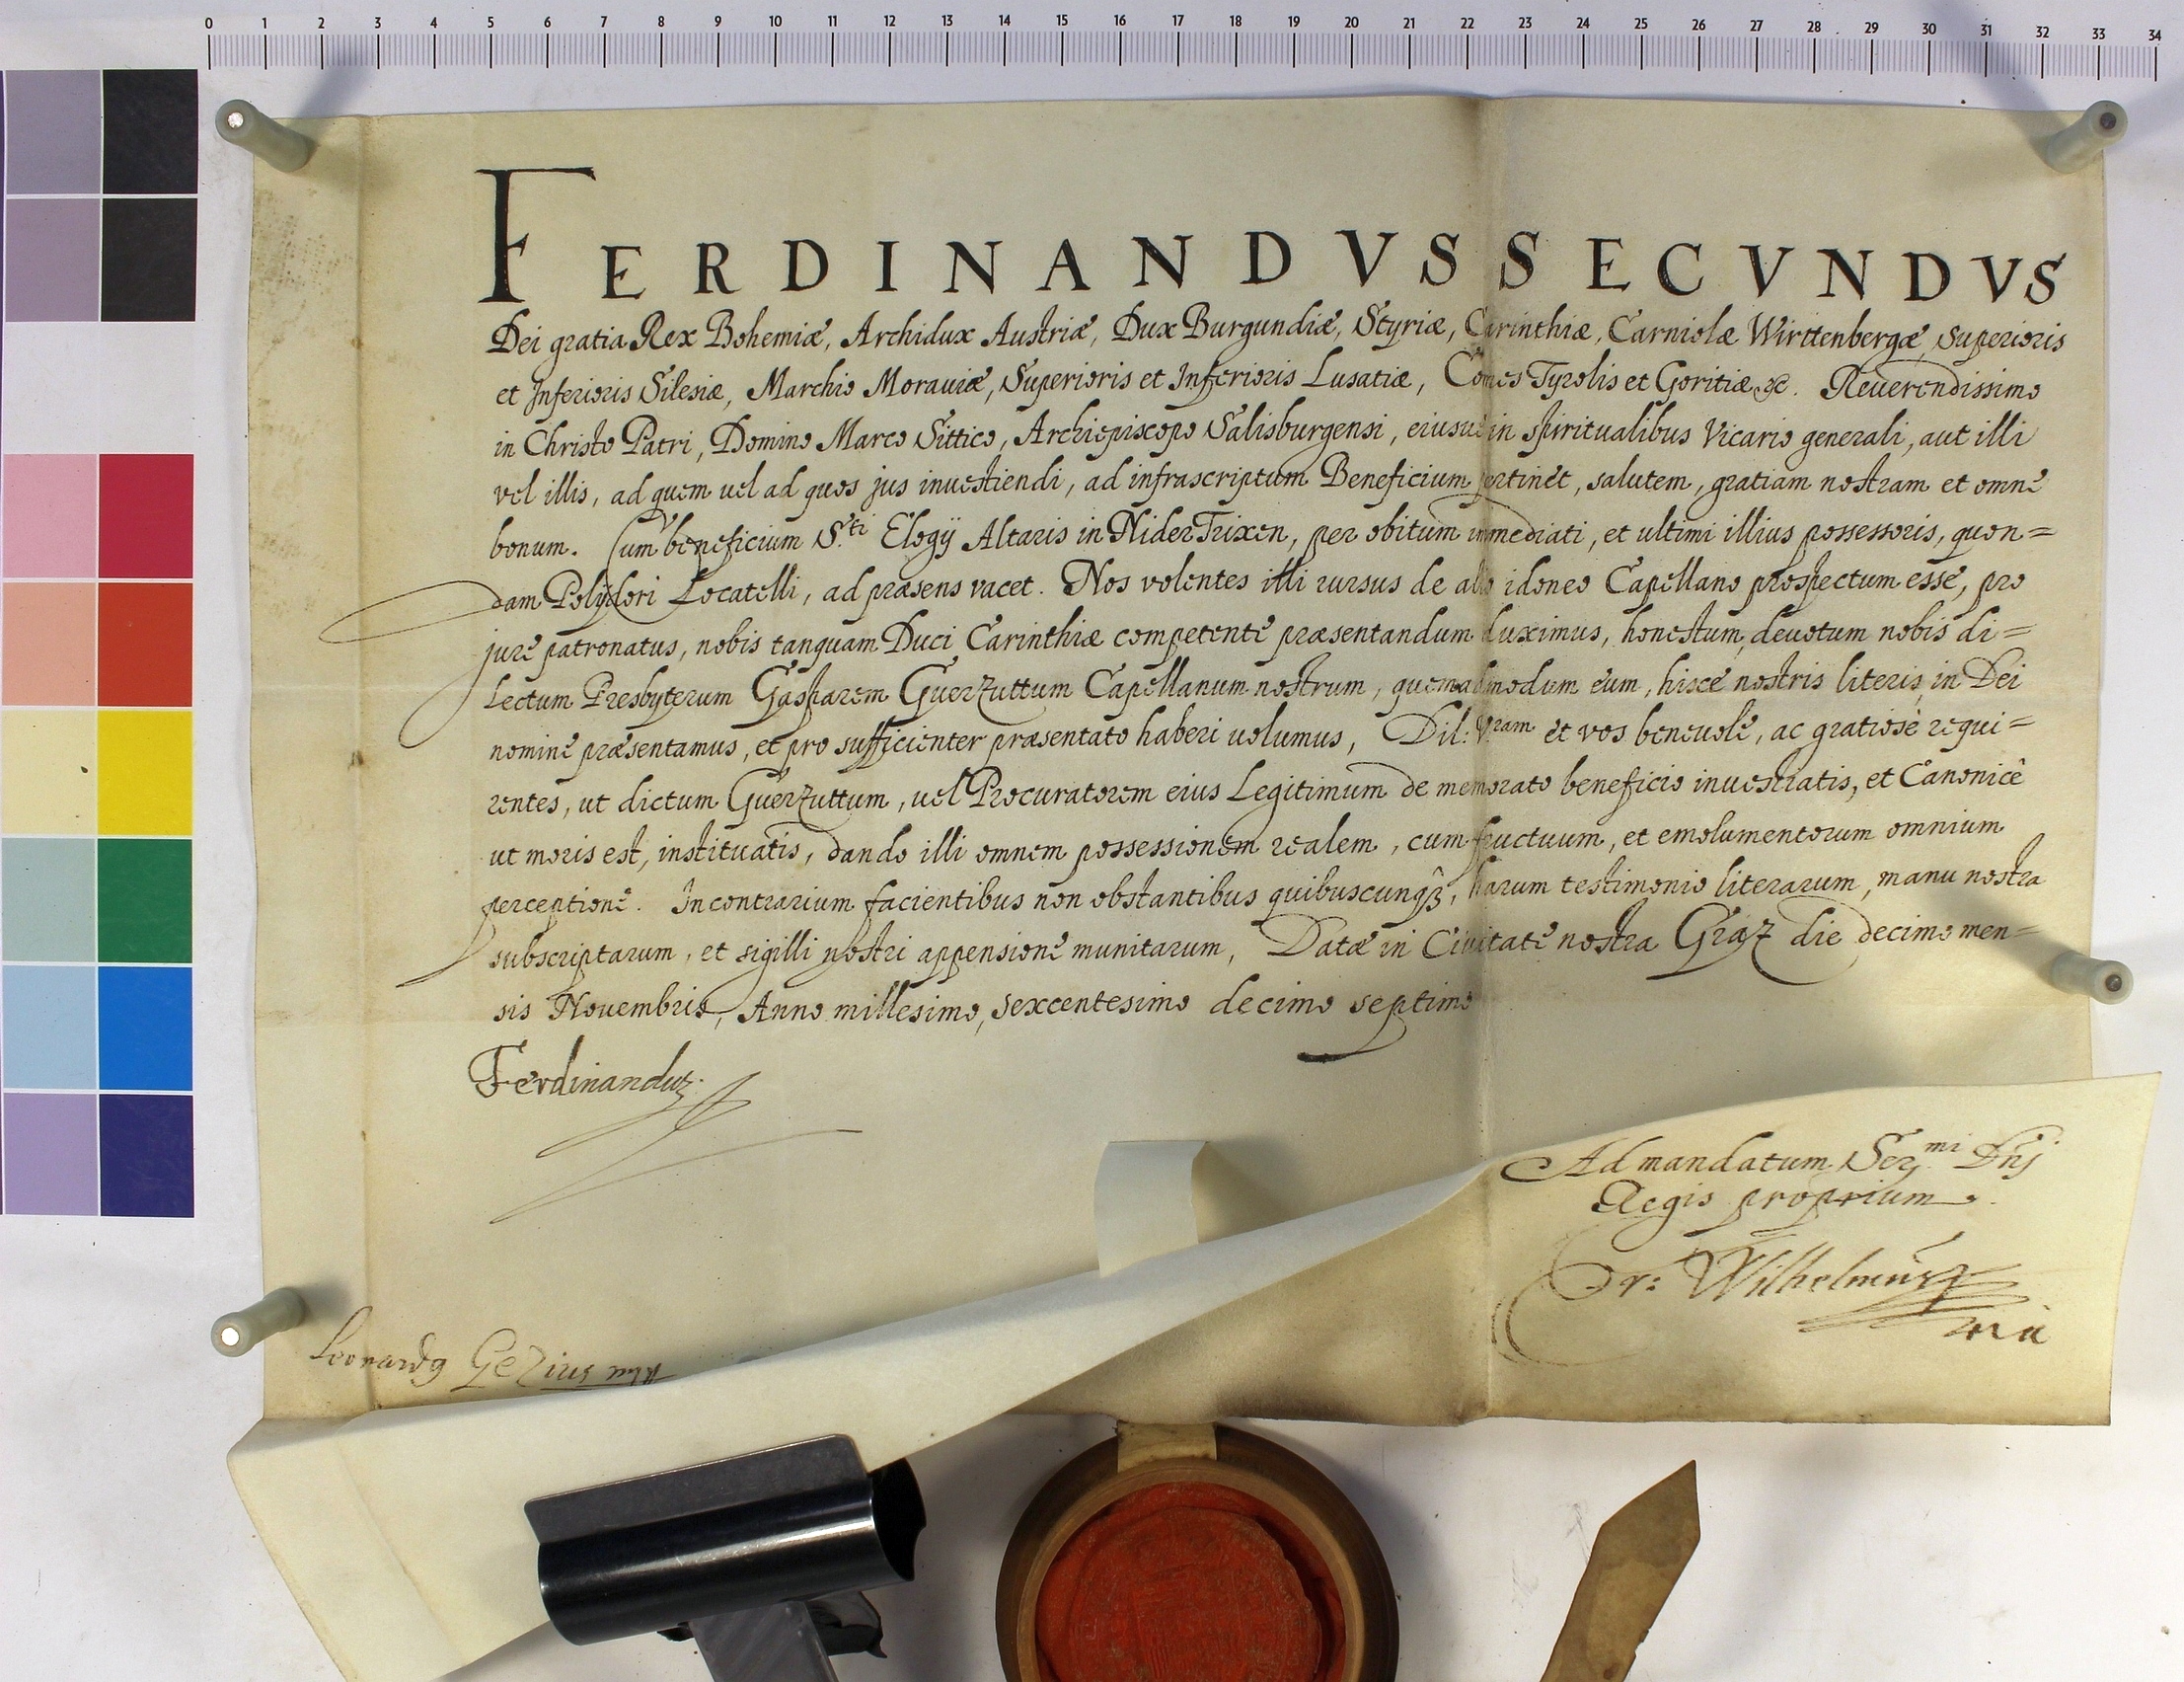 0 1 2 3 4 5 6 7 8 9 10 11 12 13 14 15 16 17 18 19 20 21 22 23 24 25 26 27 28 29 30 31 32 33 34
FERDINANDVS SECVNDVS
Dei gratia Rex Bohemiæ, Archidux Austriæ, Dux Burgundiæ, Styriæ, Carinthiæ, Carniolæ Wirttenbergæ, superioris
et Inferioris Silesiæ, Marchio Morauiæ, Superioris et Inferioris Lusatiæ, Comes Tyrolis et Goritiæ &c. Reuerendissimo
in Christo Patri, Domino Marco Sittico, Archiepiscopo Salisburgensi, eiusue in spiritualibus Vicario generali, aut illi
vel illis, ad quem uel ad quos jus inuestiendi, ad infrascriptum Beneficium pertinet, salutem, gratiam nostram et omne
bonum. Cum beneficium S.ti Elogij Altaris in Nider Trixen, per obitum immediati, et ultimi illius possessoris, quon=
dam Polydori Locatelli, ad præsens vacet. Nos volentes illi rursus de alio idoneo Capellano prospectum esse, pro
jure patronatus, nobis tanquam Duci Carinthiæ competente præsentandum duximus, honestum, deuotum nobis di=
lectum Presbyterum Gasparem Guerzuttum Capellanum nostrum, quemadmodum eum, hisce nostris literis, in Dei
nomine præsentamus, et pro sufficienter præsentato haberi uolumus, Dil: V.ram et vos beneuole, ac gratiosè requi=
rentes, ut dictum Guerzuttum, uel Procuratorem eius Legitimum de memorato beneficio inuestiatis, et Canonicè
ut moris est, instituatis, dando illi omnem possessionem realem, cum fructuum, et emolumentorum omnium
perceptione. In contrarium facientibus non obstantibus quibuscunqȝ, harum testimonio literarum, manu nostra
subscriptarum, et sigilli nostri appensione munitarum, Datæ in Ciuitate nostra Graz die decimo men=
sis Nouembris, Anno millesimo, sexcentesimo decimo septimo
Ferdinandus
Ad mandatum Ser.mi Dnj
Regis proprium.
Wilhelmus
Leonardg Gezius